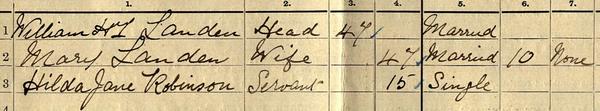 1. 2. 3. 4. 5. 6. 7.
1 William H L Landen Head 47 Married
2 Mary Landen Wife 47 Married 10 None
3 Hilda Jane Robinson Servant 15 Single